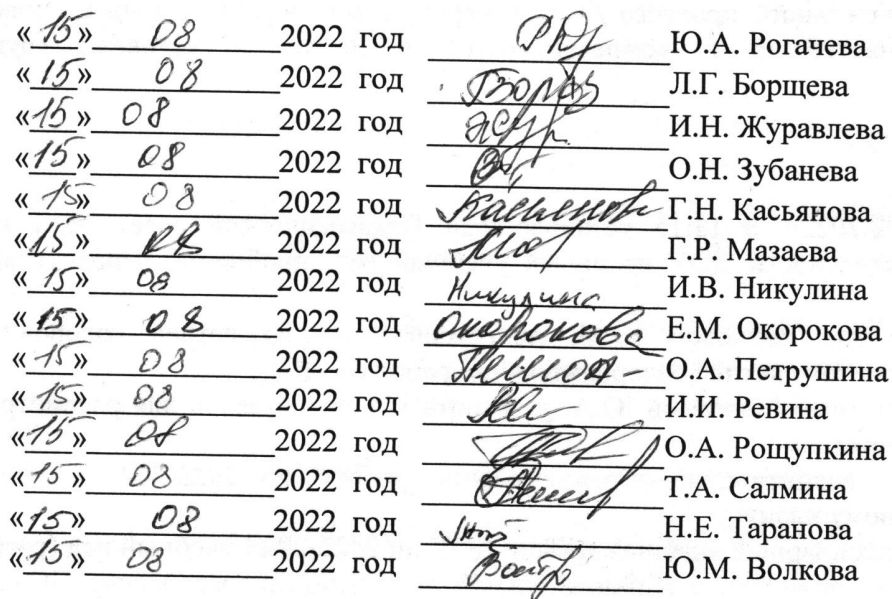 «15» 08 2022 год Ю.А. Рогачева
«15» 08 2022 год Л.Г. Борщева
«15» 08 2022 год И.Н. Журавлева
«15» 08 2022 год О.Н. Зубанева
«15» 08 2022 год Касьянов Г.Н. Касьянова
«15» 08 2022 год Г.Р. Мазаева
«15» 08 2022 год Никулина И.В. Никулина
«15» 08 2022 год Окорокова Е.М. Окорокова
«15» 08 2022 год О.А. Петрушина
«15» 08 2022 год И.И. Ревина
«15» 08 2022 год О.А. Рощупкина
«15» 08 2022 год Т.А. Салмина
«15» 08 2022 год Н.Е. Таранова
«15» 08 2022 год Ю.М. Волкова